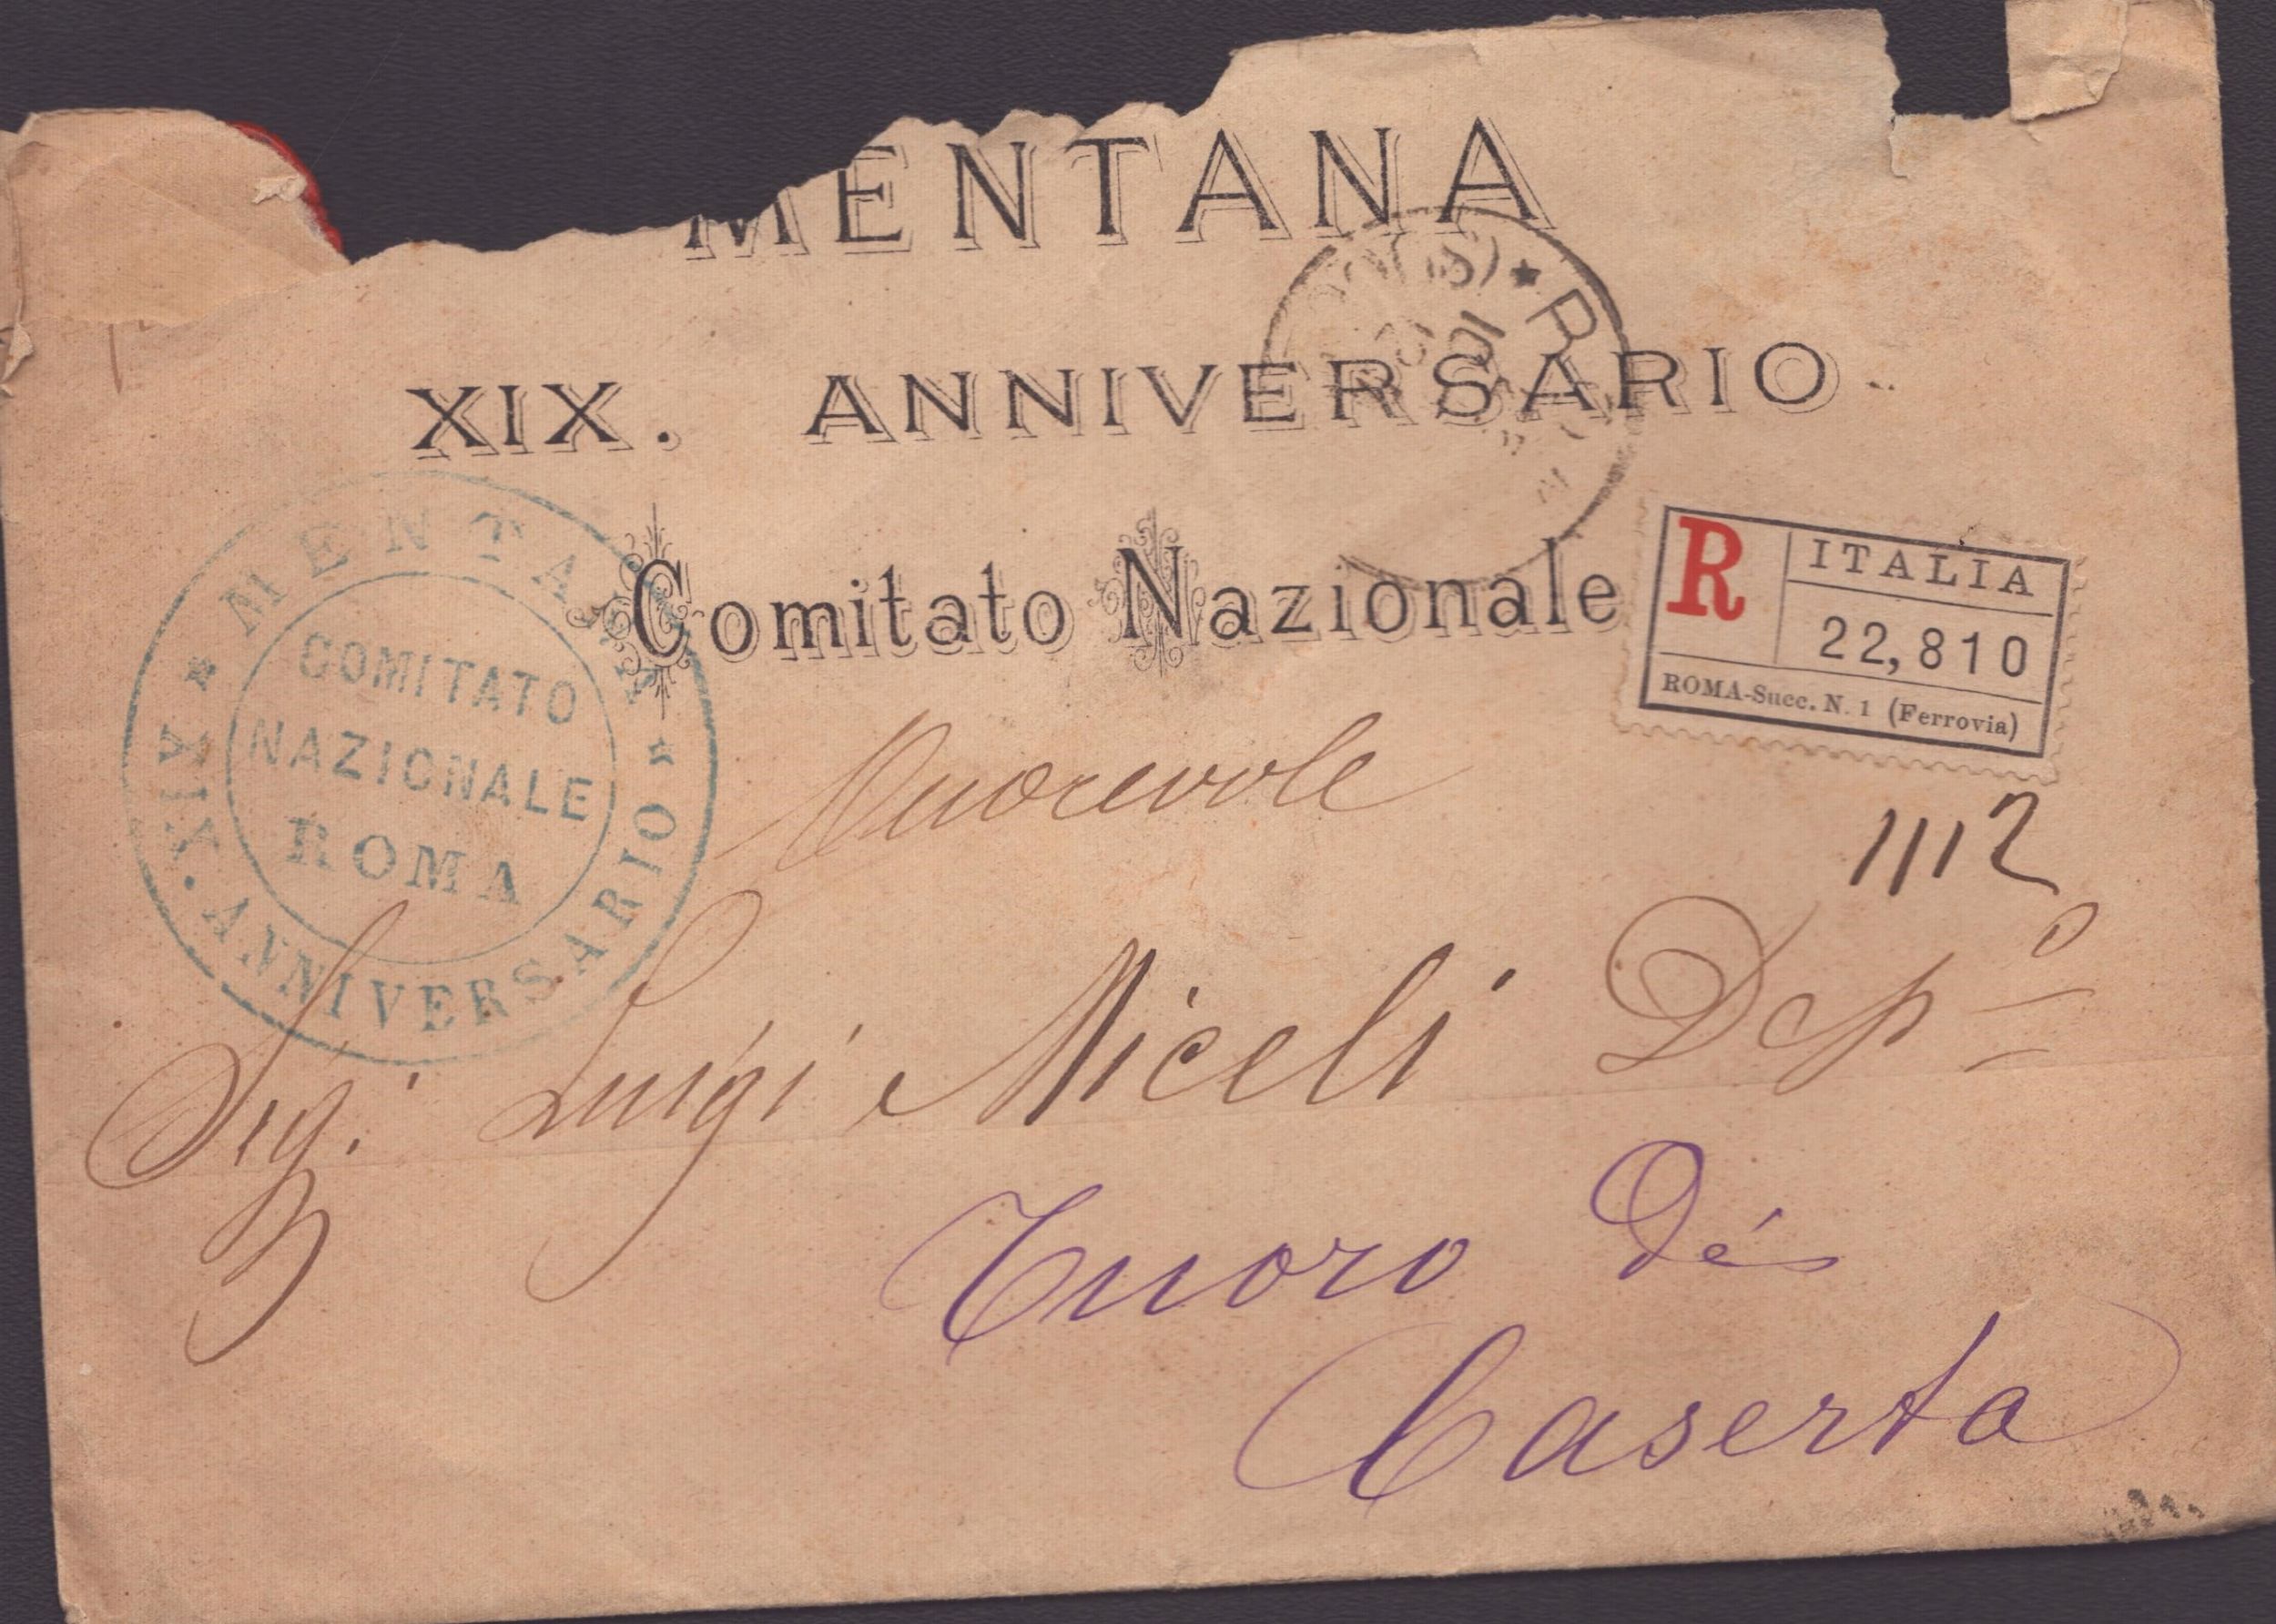 MENTANA
XIX. ANNIVERSARIO
Comitato Nazionale
MENTANA
COMITATO
NAZIONALE
ROMA
XIX. ANNIVERSARIO
R
ITALIA
22,810
ROMA-Succ. N. 1 (Ferrovia)
Onorevole
1112
Sig. Luigi Miceli Dep.o
Tuoro
Caserta